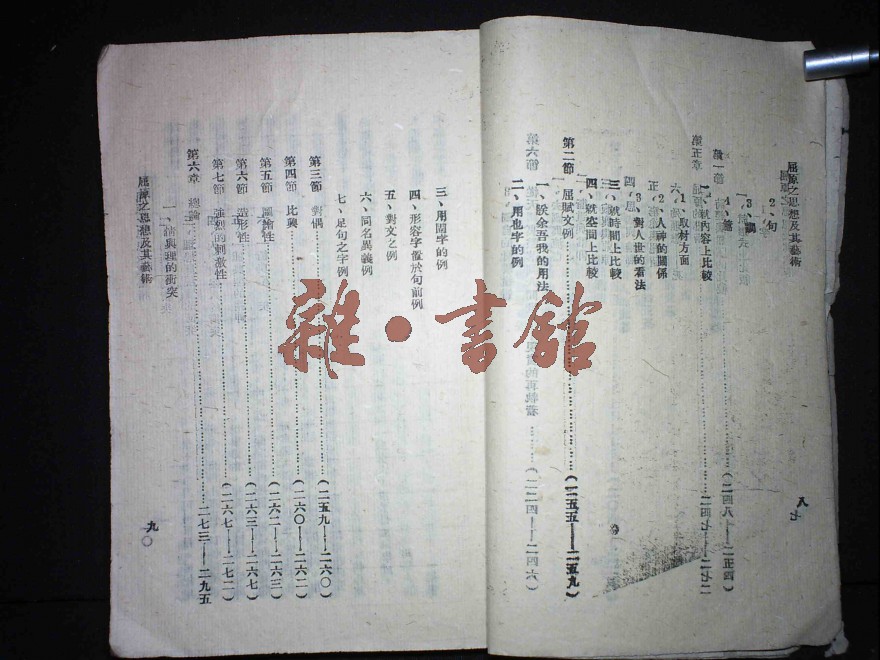 屈原之思想及其藝術
2、句
3、調
4、篇
第五章
第一節
(二四八——二五四)
二四七——二七二
一、就內容上比較
1、取材方面
2、人神的關係
3、對人世的看法
三、就時間上比較
四、就空間上比較
第二節 屈賦文例……(二五五——二五九)
第六節
(二二四——二四六)
一、朕余吾我的用法
二、用也字的例
八七
三、用同字的例
四、形容字置於句前例
五、對文之例
六、同名異義例
七、足句之字例
第三節 對偶……(二五九——二六〇)
第四節 比興……(二六〇——二六二)
第五節 諷諭性……(二六二——二六三)
第六節 造形性……(二六三——二六七)
第七節 強烈的刺激性……(二六七——二七二)
第六章 總論……二七三——二九五
一、情與理的衝突
屈原之思想及其藝術
九〇
雜·書館